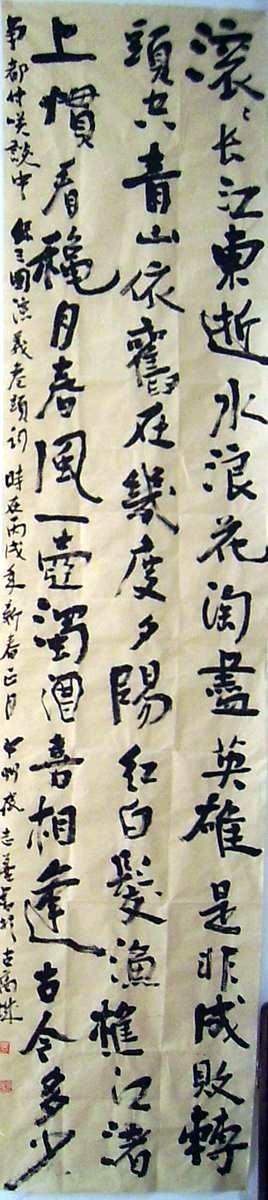 滚々长江東逝水浪花淘盡英雄是非成敗轉
頭空青山依舊在幾度夕陽红白髮漁樵江渚
上慣看穐月春風一壺濁酒喜相逢古今多少
事都付咲談中 錄三国演义卷頭詞 時在丙戌年新春正月 志 書於古